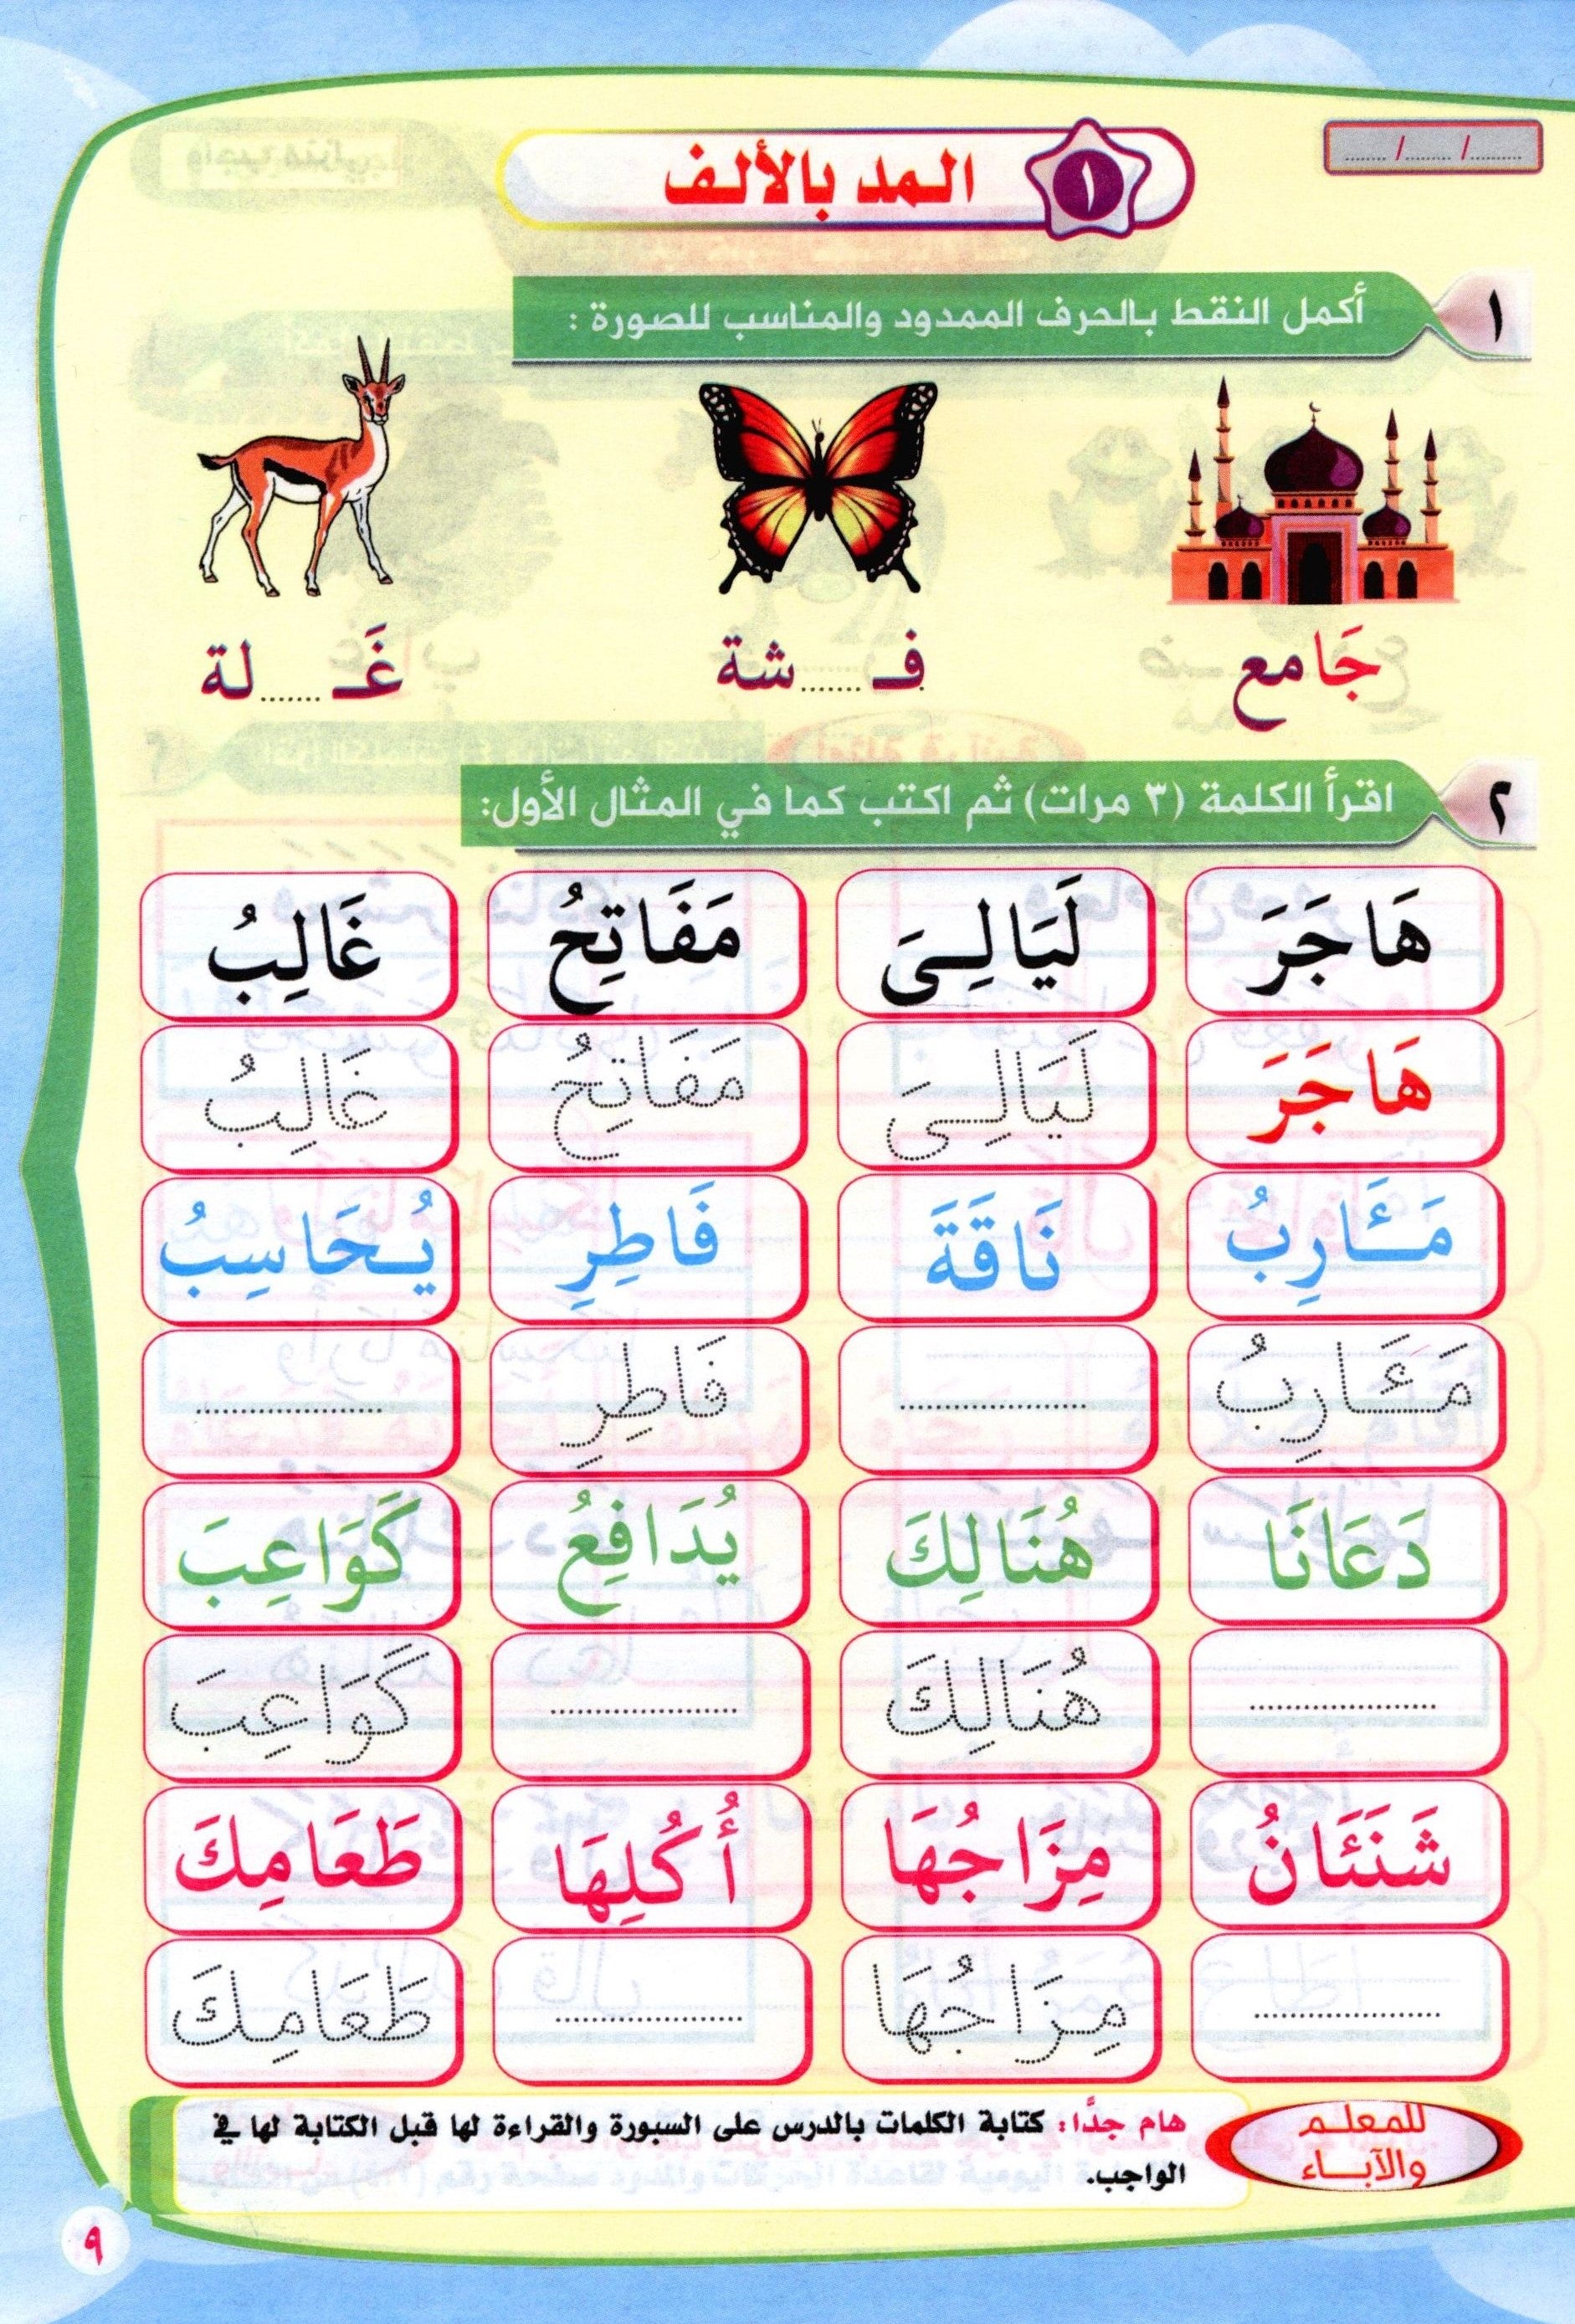 / /
١ المد بالألف
١ أكمل النقط بالحرف الممدود والمناسب للصورة :
جَامع فـ......شة غَـ......لة
٢ اقرأ الكلمة (٣ مرات) ثم اكتب كما في المثال الأول:
هَاجَرَ لَيَالِىَ مَفَاتِحُ غَالِبُ
هَاجَرَ لَيَالِىَ مَفَاتِحُ غَالِبُ
مَـَٔارِبُ نَاقَةَ فَاطِرِ يُحَاسِبُ
مَـَٔارِبُ .................... فَاطِرِ ....................
دَعَانَا هُنَالِكَ يُدَافِعُ كَوَاعِبَ
.................... هُنَالِكَ .................... كَوَاعِبَ
شَنَـَٔانُ مِزَاجُهَا أُكُلِهَا طَعَامِكَ
.................... مِزَاجُهَا .................... طَعَامِكَ
للمعلم والآباء
هام جدًا: كتابة الكلمات بالدرس على السبورة والقراءة لها قبل الكتابة لها في
الواجب.
٩